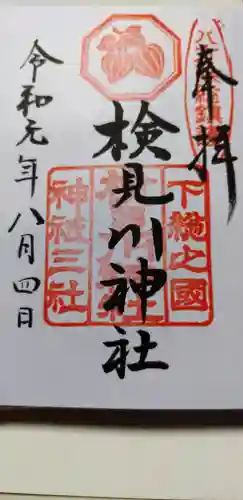 奉拝
八
下総之國
検見川神社
神祉三社
令和元年八月四日